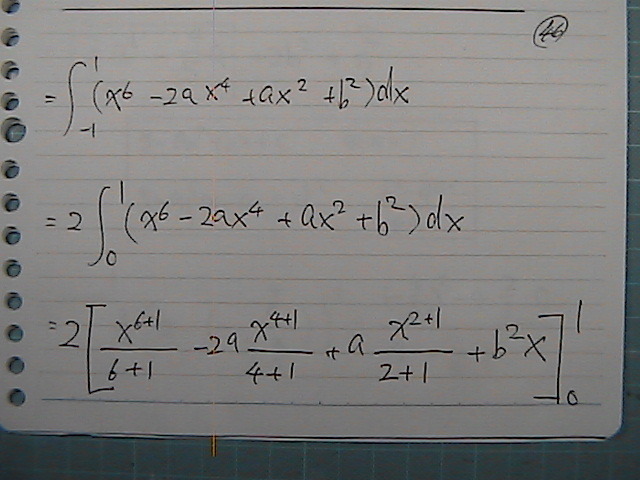 46
= ∫₋₁¹ (x⁶ - 2a x⁴ + ax² + b²) dx
= 2 ∫₀¹ (x⁶ - 2ax⁴ + ax² + b²) dx
= 2 [ x⁶⁺¹/(6+1) - 2a x⁴⁺¹/(4+1) + a x²⁺¹/(2+1) + b²x ]₀¹